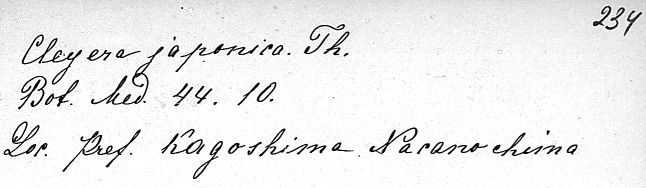 234
Cleyera japonica. Th.
Bot. Med. 44. 10.
Loc. Pref. Kagoshima Nacanochima